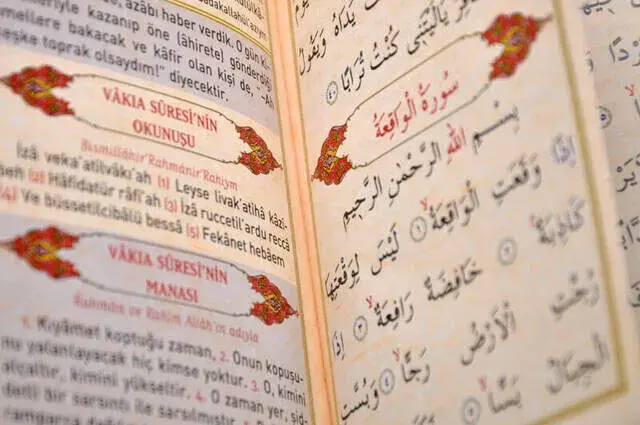 eriyle kazanıp öne (âhirete) gönderdiği
mellere bakacak ve kâfir olan kişi de, "-Ah
toprak olsaydım!" diyecektir.
VÂKIA SÛRESİ'NİN
OKUNUŞU
Bismillâhir'Rahmânir'Rahıym
İzâ veka'atilvâkı'ah (1) Leyse livak'atihâ kâzi-
beh (2) Hâfidatür râfi'ah (3) İzâ ruccetil'ardu reccâ
(4) Ve büssetilcibâlü bessâ (5) Fekânet hebâem
VÂKIA SÛRESİ'NİN
MANASI
Rahmân ve Rahîm Allâh'ın adıyla
1. Kıyâmet koptuğu zaman, 2. Onun kopuşu-
nu yalanlayacak hiç kimse yoktur. 3. O, kimini
alçaltır, kimini yükseltir. 4. O zaman yer, şid-
detli bir sarsıntı ile sarsılmıştır. 5.
يَدَاهُ وَيَقُولُ
فِرُ يَالَيْتَنِي كُنْتُ تُرَابًا ﴿٤٠﴾
سُورَةُ الْوَاقِعَةِ
بِسْمِ اللَّهِ الرَّحْمٰنِ الرَّحِيمِ
إِذَا وَقَعَتِ الْوَاقِعَةُ ﴿١﴾ لَيْسَ لِوَقْعَتِهَا
كَاذِبَةٌ ﴿٢﴾ خَافِضَةٌ رَافِعَةٌ ﴿٣﴾ إِذَا
رُجَّتِ الْأَرْضُ رَجًّا ﴿٤﴾ وَبُسَّتِ
الْجِبَالُ بَسًّا ﴿٥﴾